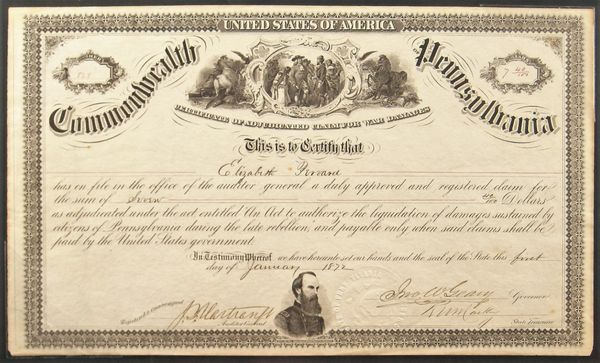 UNITED STATES OF AMERICA
Commonwealth Pennsylvania
CERTIFICATE OF ADJUDICATED CLAIM FOR WAR DAMAGES
This is to Certify that
Elizabeth
has on file in the office of the auditor general a duly approved and registered claim for
the sum of Seven Dollars
as adjudicated under the act entitled An Act to authorize the liquidation of damages sustained by
citizens of Pennsylvania during the late rebellion, and payable only when said claims shall be
paid by the United States government.
In Testimony Whereof, we have hereunto set our hands and the seal of the State this first
day of January 1872
Jno W Geary Governor
J. F. Hartranft
Auditor General
State Treasurer